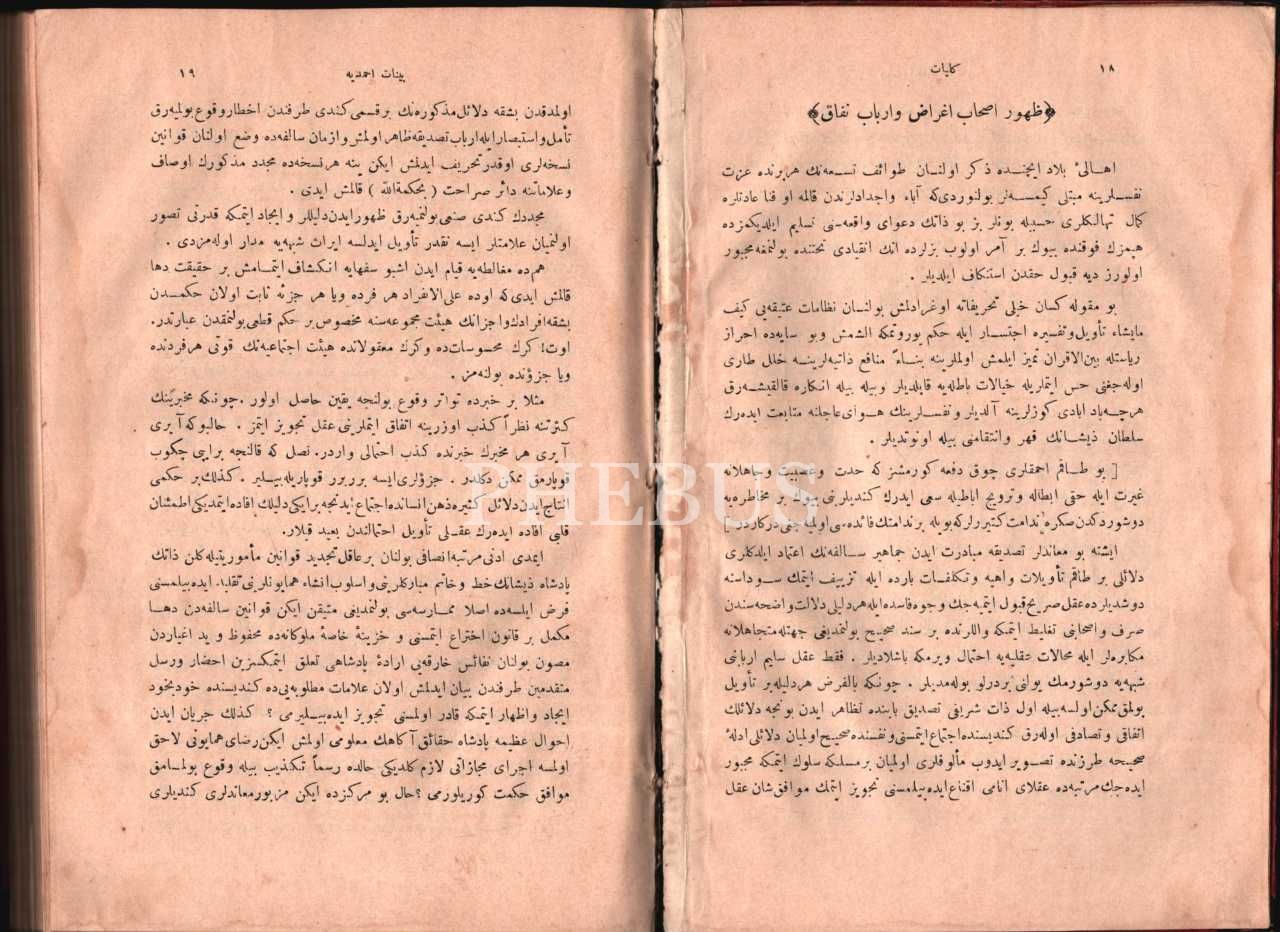 ١٨
كليات
﴿ظهور اصحاب اغراض وارباب نفاق﴾
اهالئ بلاد ايچنده ذكر اولنان طوائف تسعه‌نك هربرنده عزت
نفسلرينه مبتلى كيمسه‌لر بولنوردى‌كه آباء واجدادلرندن قالمه او فنا عادتلره
كمال تهالكلرى حسبيله بونلر بز بو ذاتك دعواى واقعه‌سنى تسليم ايلديكمزده
هپمزك فوقنده بيوك بر آمر اولوب بزلرده انك انقيادى تحتنده بولنمغه مجبور
اولورز ديه قبول حقدن استنكاف ايلديلر .
بو مقوله كسان خيلى تحريفاته اوغرادلمش بولنان نظامات عتيقه‌يى كيف
مايشاء تأويل‌وتفسيره اجتسار ايله حكم يوروتمكه الشمش وبو سايه‌ده احراز
رياستله بين‌الاقران تميز ايلمش اولملرينه بناءً منافع ذاتيه‌لرينه خلل طارى
اوله‌جغنى حس ايتملريله خيالات باطله‌يه قاپلديلر وبيله بيله انكاره قالقيشه‌رق
هرچه‌باد ابادى كوزلرينه آلديلر ونفسلرينك هواى عاجلنه متابعت ايده‌رك
سلطان ذيشانك قهر وانتقامنى بيله اونوتديلر .
[ بو طاقم احمقلرى چوق دفعه كورمشز كه حدت وعصبيت وجاهلانه
غيرت ايله حقى ابطاله وترويج اباطيله سعى ايدرك كنديلرينى بيوك بر مخاطره‌يه
دوشوردكدن صكره ندامت كتيررلركه بويله برندامتك فائده‌سى اوليه‌جغى دركاردر ]
ايشته بو معاندلر تصديقه مبادرت ايدن جماهير سالفه‌نك اعتماد ايلدكلرى
دلائلى بر طاقم تأويلات واهيه وتكلفات بارده ايله تزييف ايتمك سوداسنه
دوشديلرده عقل صريح قبول ايتميه‌جك وجوه فاسده ايله هردليلى دلالت واضحه‌سندن
صرف واصحابنى تغليط ايتمكه واللرنده بر سند صحيح بولنمديغى جهتله متجاهلانه
مكابره‌لر ايله محالات عقليه‌يه احتمال ويرمكه باشلاديلر . فقط عقل سليم اربابنى
شبهه‌يه دوشورمك يولنى بردرلو بوله‌مديلر . چونكه بالفرض هردليله بر تأويل
بولمق ممكن اولسه بيله اول ذات شريفى تصديق بابنده تظاهر ايدن بونجه دلائلك
اتفاقى وتصادفى اوله‌رق كنديسنده اجتماع ايتمسنى ونفسنده صحيح اولميان دلائلى ادلهٔ
صحيحه طرزنده تصوير ايدوب مألوفلرى اولميان برمسلكه سلوك ايتمكه مجبور
ايده‌جك مرتبه‌ده عقلاى انامى اقناع ايده‌بيلمسنى تجويز ايتمك موافق شان عقل
بينات احمديه
١٩
اولمدقدن بشقه دلائل مذكوره‌نك برقسمى كندى طرفندن اخطار وقوع بولميه‌رق
تأمل واستبصار ايله ارباب تصديقه ظاهر اولمش وازمان سالفه‌ده وضع اولنان قوانين
نسخه‌لرى اوقدر تحريف ايدلمش ايكن ينه هر نسخه‌ده مجدد مذكورك اوصاف
وعلاماتنه دائر صراحت ( بحكمةالله ) قالمش ايدى .
مجددك كندى صنعى بولنميه‌رق ظهور ايدن دليللر و ايجاد ايتمكه قدرتى تصور
اولنميان علامتلر ايسه نقدر تأويل ايدلسه ايراث شبهه‌يه مدار اوله‌مزدى .
هم‌ده مغالطه‌يه قيام ايدن اشبو سفهايه انكشاف ايتمامش بر حقيقت دها
قالمش ايدى‌كه اوده على‌الانفراد هر فرده ويا هر جزئه ثابت اولان حكمدن
بشقه افرادك واجزانك هيئت مجموعه‌سنه مخصوص بر حكم قطعى بولنمقدن عبارتدر.
اوت! كرك محسوسات‌ده وكرك معقولاتده هيئت اجتماعيه‌نك قوتى هرفردنده
ويا جزؤنده بولنه‌مز .
مثلا بر خبرده تواتر وقوع بولنجه يقين حاصل اولور . چونكه مخبرينك
كثرتنه نظراً كذب اوزرينه اتفاق ايتملرينى عقل تجويز ايتمز . حالبوكه آيرى
آيرى هر مخبرك خبرنده كذب احتمالى واردر. نصل كه قالنجه برايپى چكوب
قوپارمق ممكن دكلدر . جزؤلرى ايسه برربرر قوپاريله‌بيلير . كذلك بر حكمى
انتاج ايدن دلائل كثيره ذهن انسانده اجتماع ايدنجه برايكى دليلك افاده ايتمديكى اطمئنان
قلبى افاده ايده‌رك عقلى تأويل احتمالندن بعيد قيلار.
ايمدى ادنى مرتبه انصافى بولنان بر عاقل تجديد قوانين مأموريتيله كلن ذاتك
پادشاه ذيشانك خط وخاتم مباركلرينى واسلوب انشاء همايونلرينى تقليد ايده‌بيلمسنى
فرض ايلسه‌ده اصلا ممارسه‌سى بولنمديغى متيقن ايكن قوانين سالفه‌دن دها
مكمل بر قانون اختراع ايتمسنى و خزينهٔ خاصهٔ ملوكانه‌ده محفوظ و يد اغياردن
مصون بولنان نفائس خارقه‌يى ارادهٔ پادشاهى تعلق ايتمكسزين احضار ورسل
متقدمين طرفندن بيان ايدلمش اولان علامات مطلوبه‌يى‌ده كنديسنده خودبخود
ايجاد واظهار ايتمكه قادر اولمسنى تجويز ايده‌بيليرمى ؟ كذلك جريان ايدن
احوال عظيمه پادشاه حقائق آكاهك معلومى اولمش ايكن رضاى همايونى لاحق
اولمسه اجراى مجازاتى لازم كلديكى حالده رسماً تكذيب بيله وقوع بولمامق
موافق حكمت كوريلورمى ؟ حال بو مركزده ايكن مزبور معاندلرى كنديلرى
PHEBUS